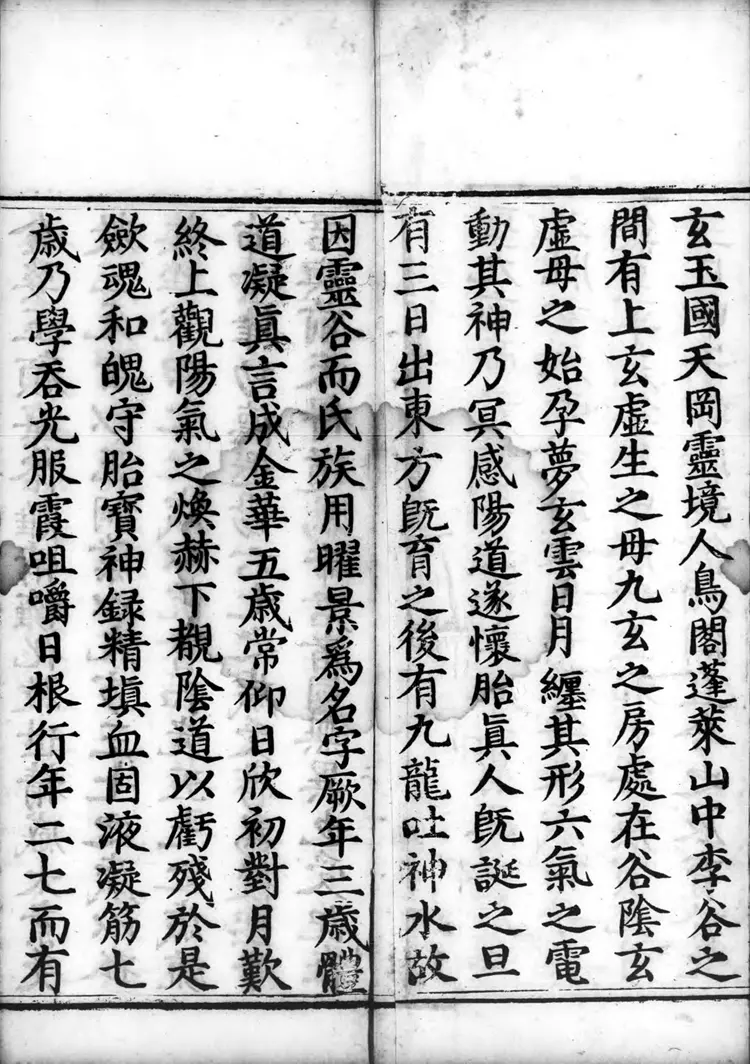 玄玉國天岡靈境人鳥閣蓬萊山中李谷之
間有上玄虛生之母九玄之房處在谷陰玄
虛母之始孕夢玄雲日月纏其形六氣之電
動其神乃冥感陽道遂懷胎眞人旣誕之旦
有三日出東方旣育之後有九龍吐神水故
因靈谷而氏族用曜景爲名字厥年三歲體
道凝眞言成金華五歲常仰日欣初對月歎
終上觀陽氣之煥赫下覩陰道以虧殘於是
歛魂和魄守胎寶神録精塡血固液凝筋七
歲乃學吞光服霞咀嚼日根行年二七而有